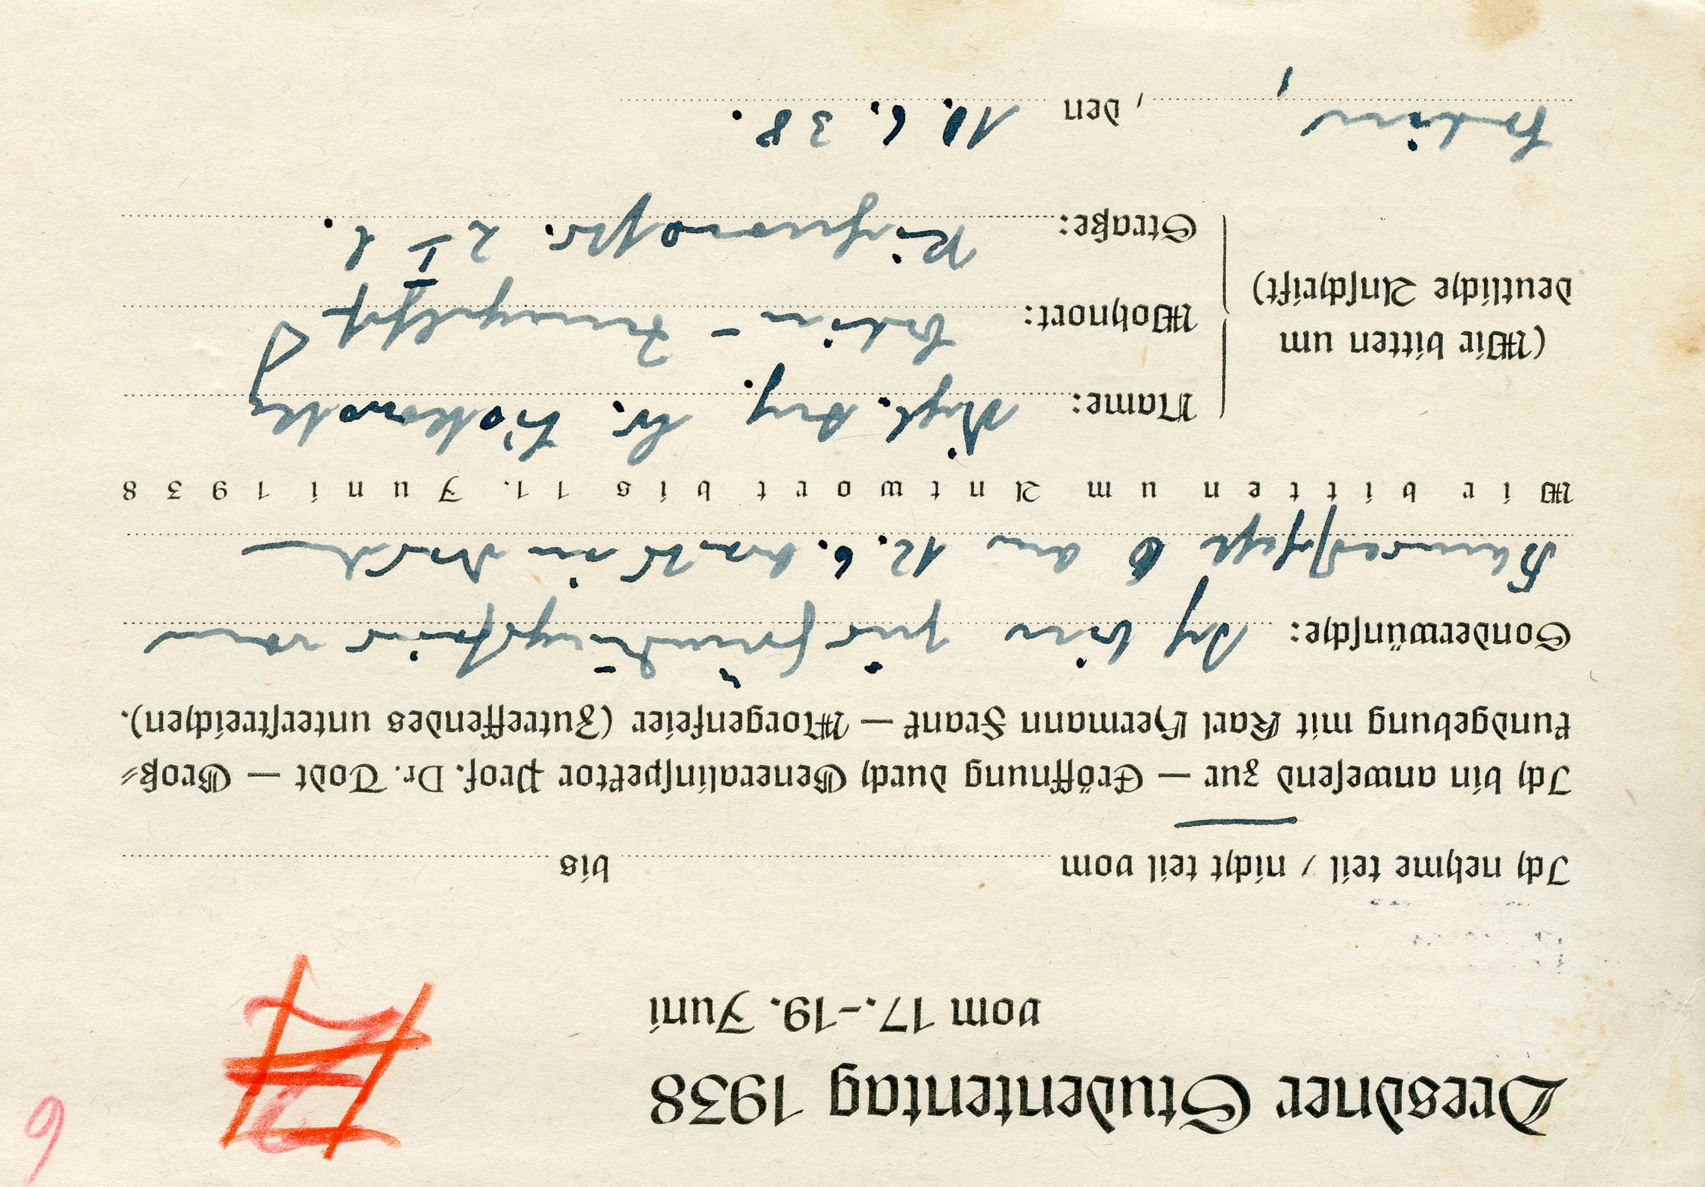 Dresdner Studententag 1938
vom 17.-19. Juni
6
Ich nehme teil / nicht teil vom bis
Ich bin anwesend zur — Eröffnung durch Generalinspektor Prof. Dr. Todt — Groß-
kundgebung mit Karl Hermann Frank — Morgenfeier (Zutreffendes unterstreichen).
Sonderwünsche: Ich bin zur Gründungsfeier vom
am 12.6. bereits in
Wir bitten um Antwort bis 11. Juni 1938
(Wir bitten um
deutliche Anschrift)
Name: Dipl. Ing.
Wohnort: Berlin -
Straße: 2 I l.
Berlin, den 10.6.38.